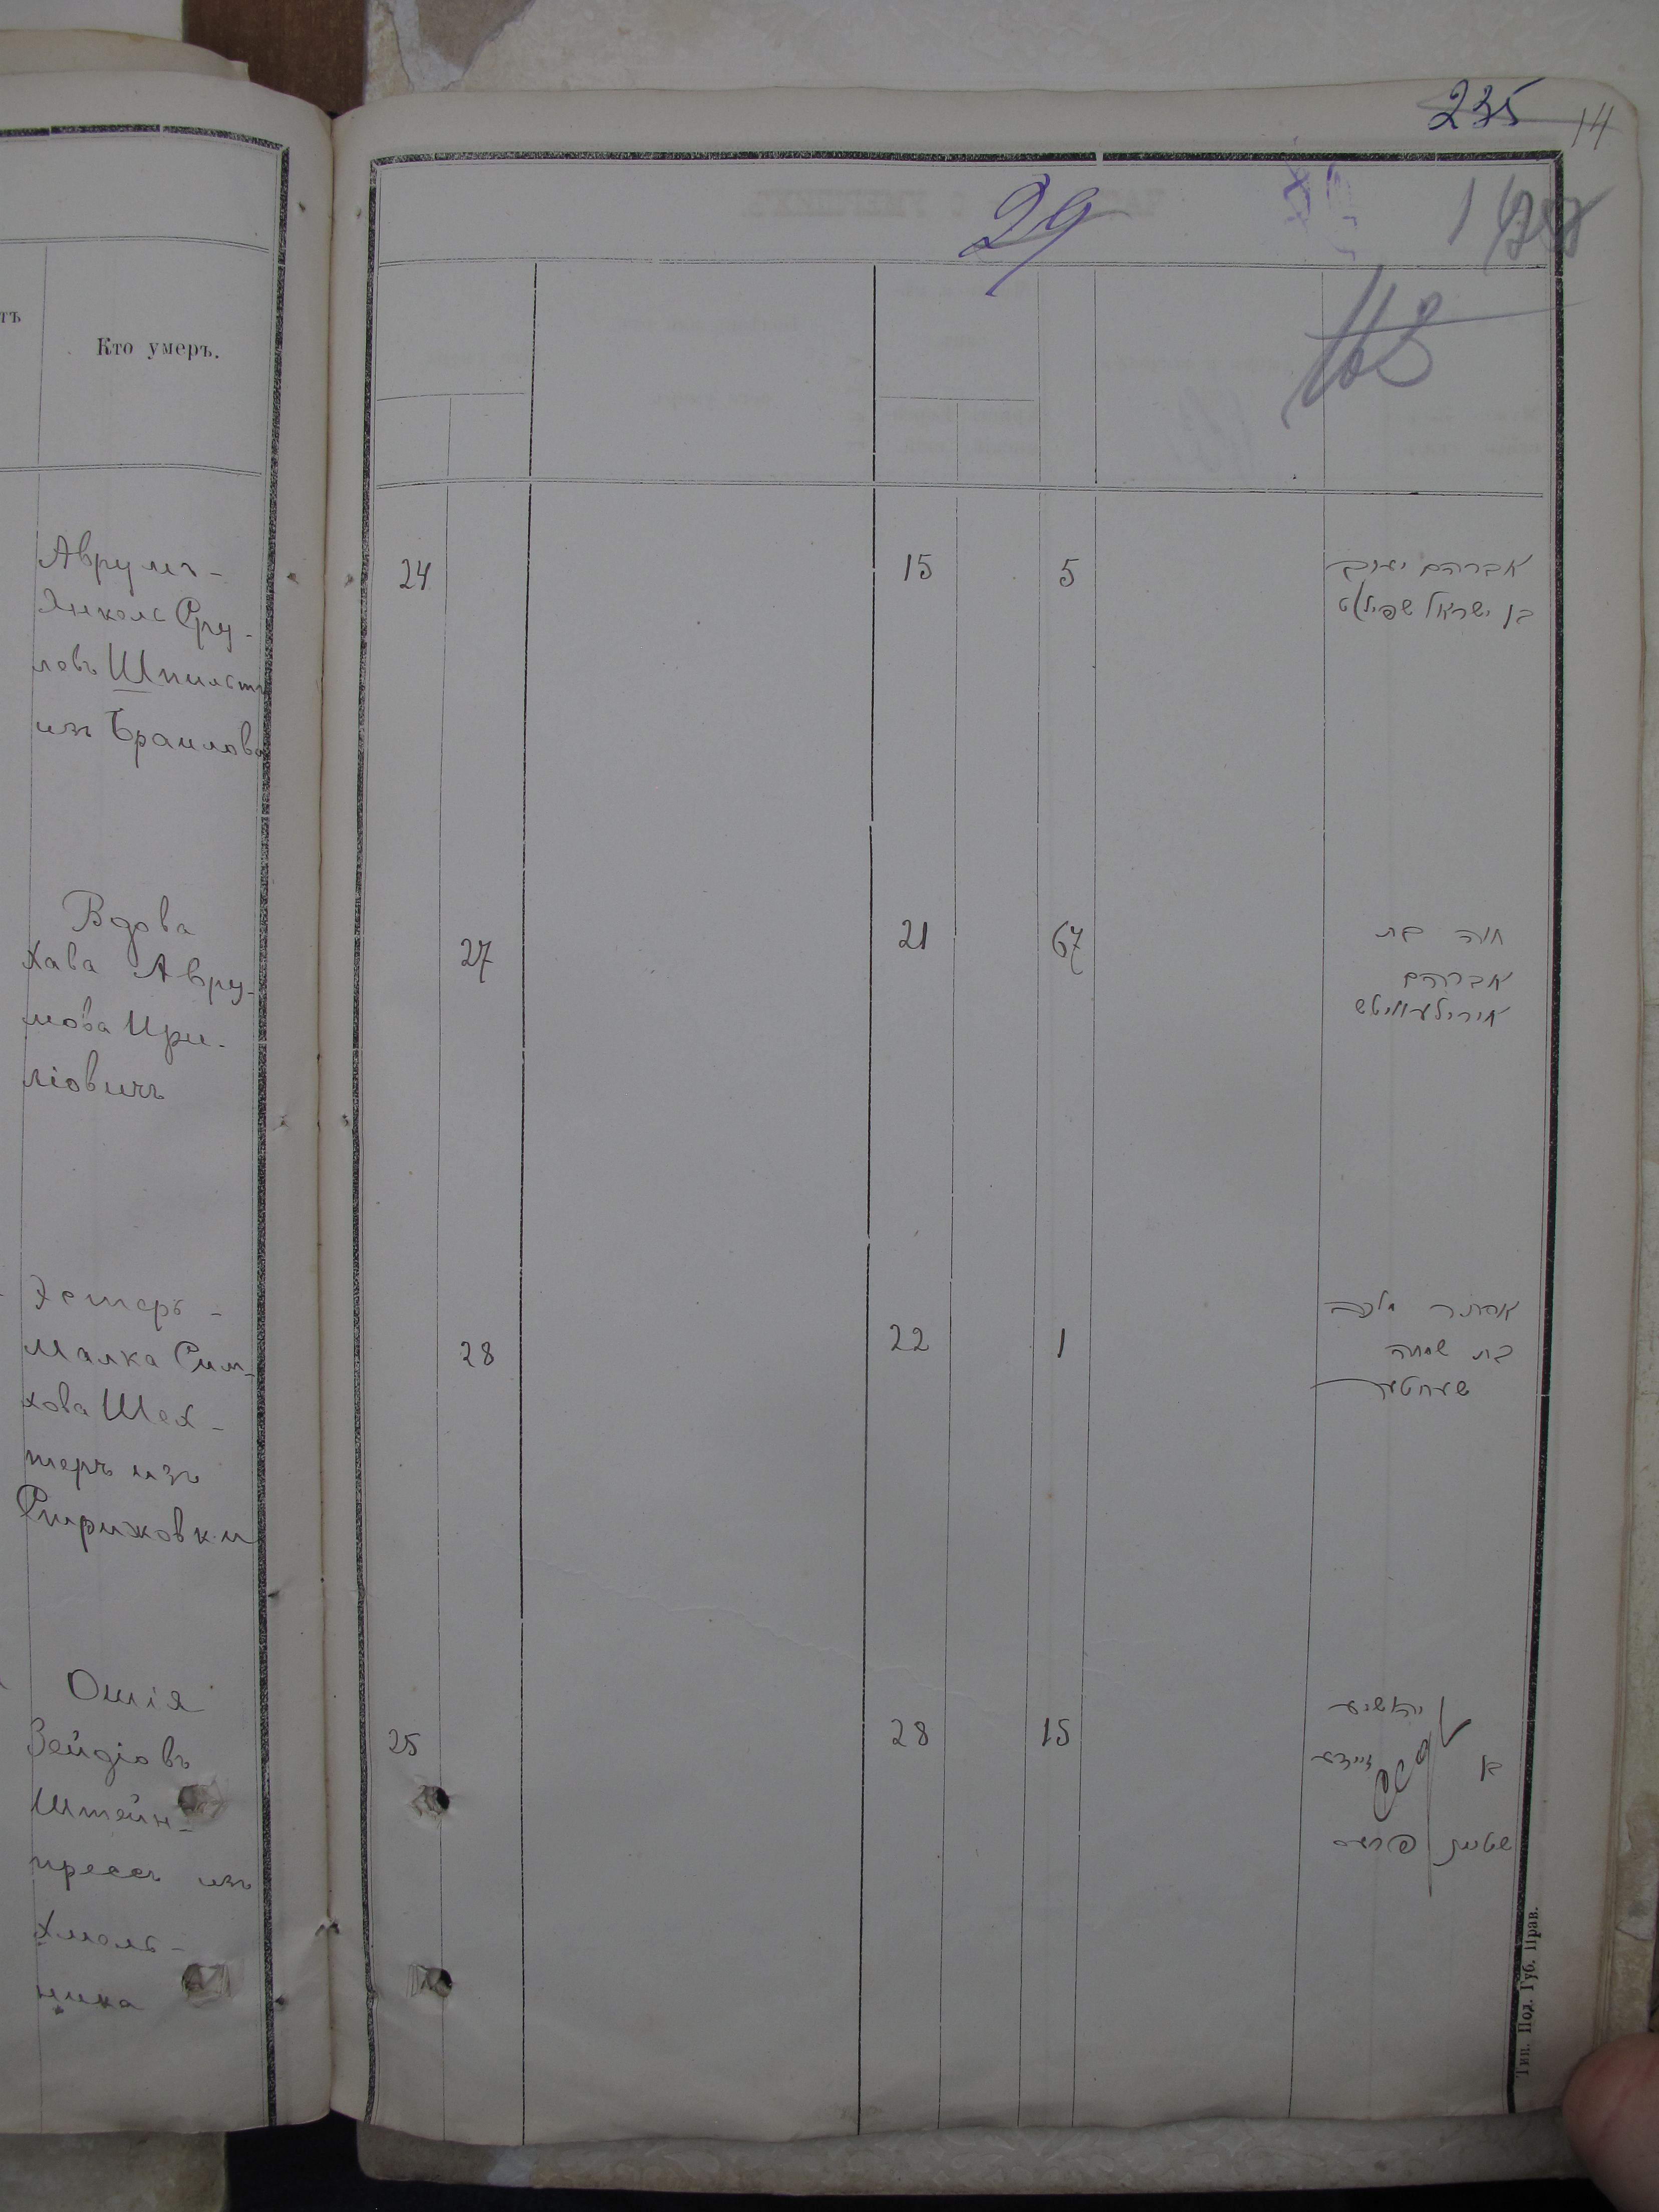 235 14
29
тъ
Кто умеръ.
163
Аврумъ-
Янкель Сру-
левъ Шпильтъ
изъ Браилова
24 15 5
אברהם יעקב
בן ישראל שפילט
Вдова
Хава Авру-
мова Ири-
ліовичъ
27 21 67
חוה בת
אברהם
אירילעוויטש
Эстеръ-
Малка Сим-
хова Шех-
теръ изъ
Стрижовки
28 22 1
אסתר מלכה
בת שמחה
שעחטער
Ошія
Зейдіовъ
Штейн-
прессъ изъ
Хмель-
ника
25 28 15
יהאשיע
בן זיידע
שטיין פרעס
Тип. Под. Губ. Прав.